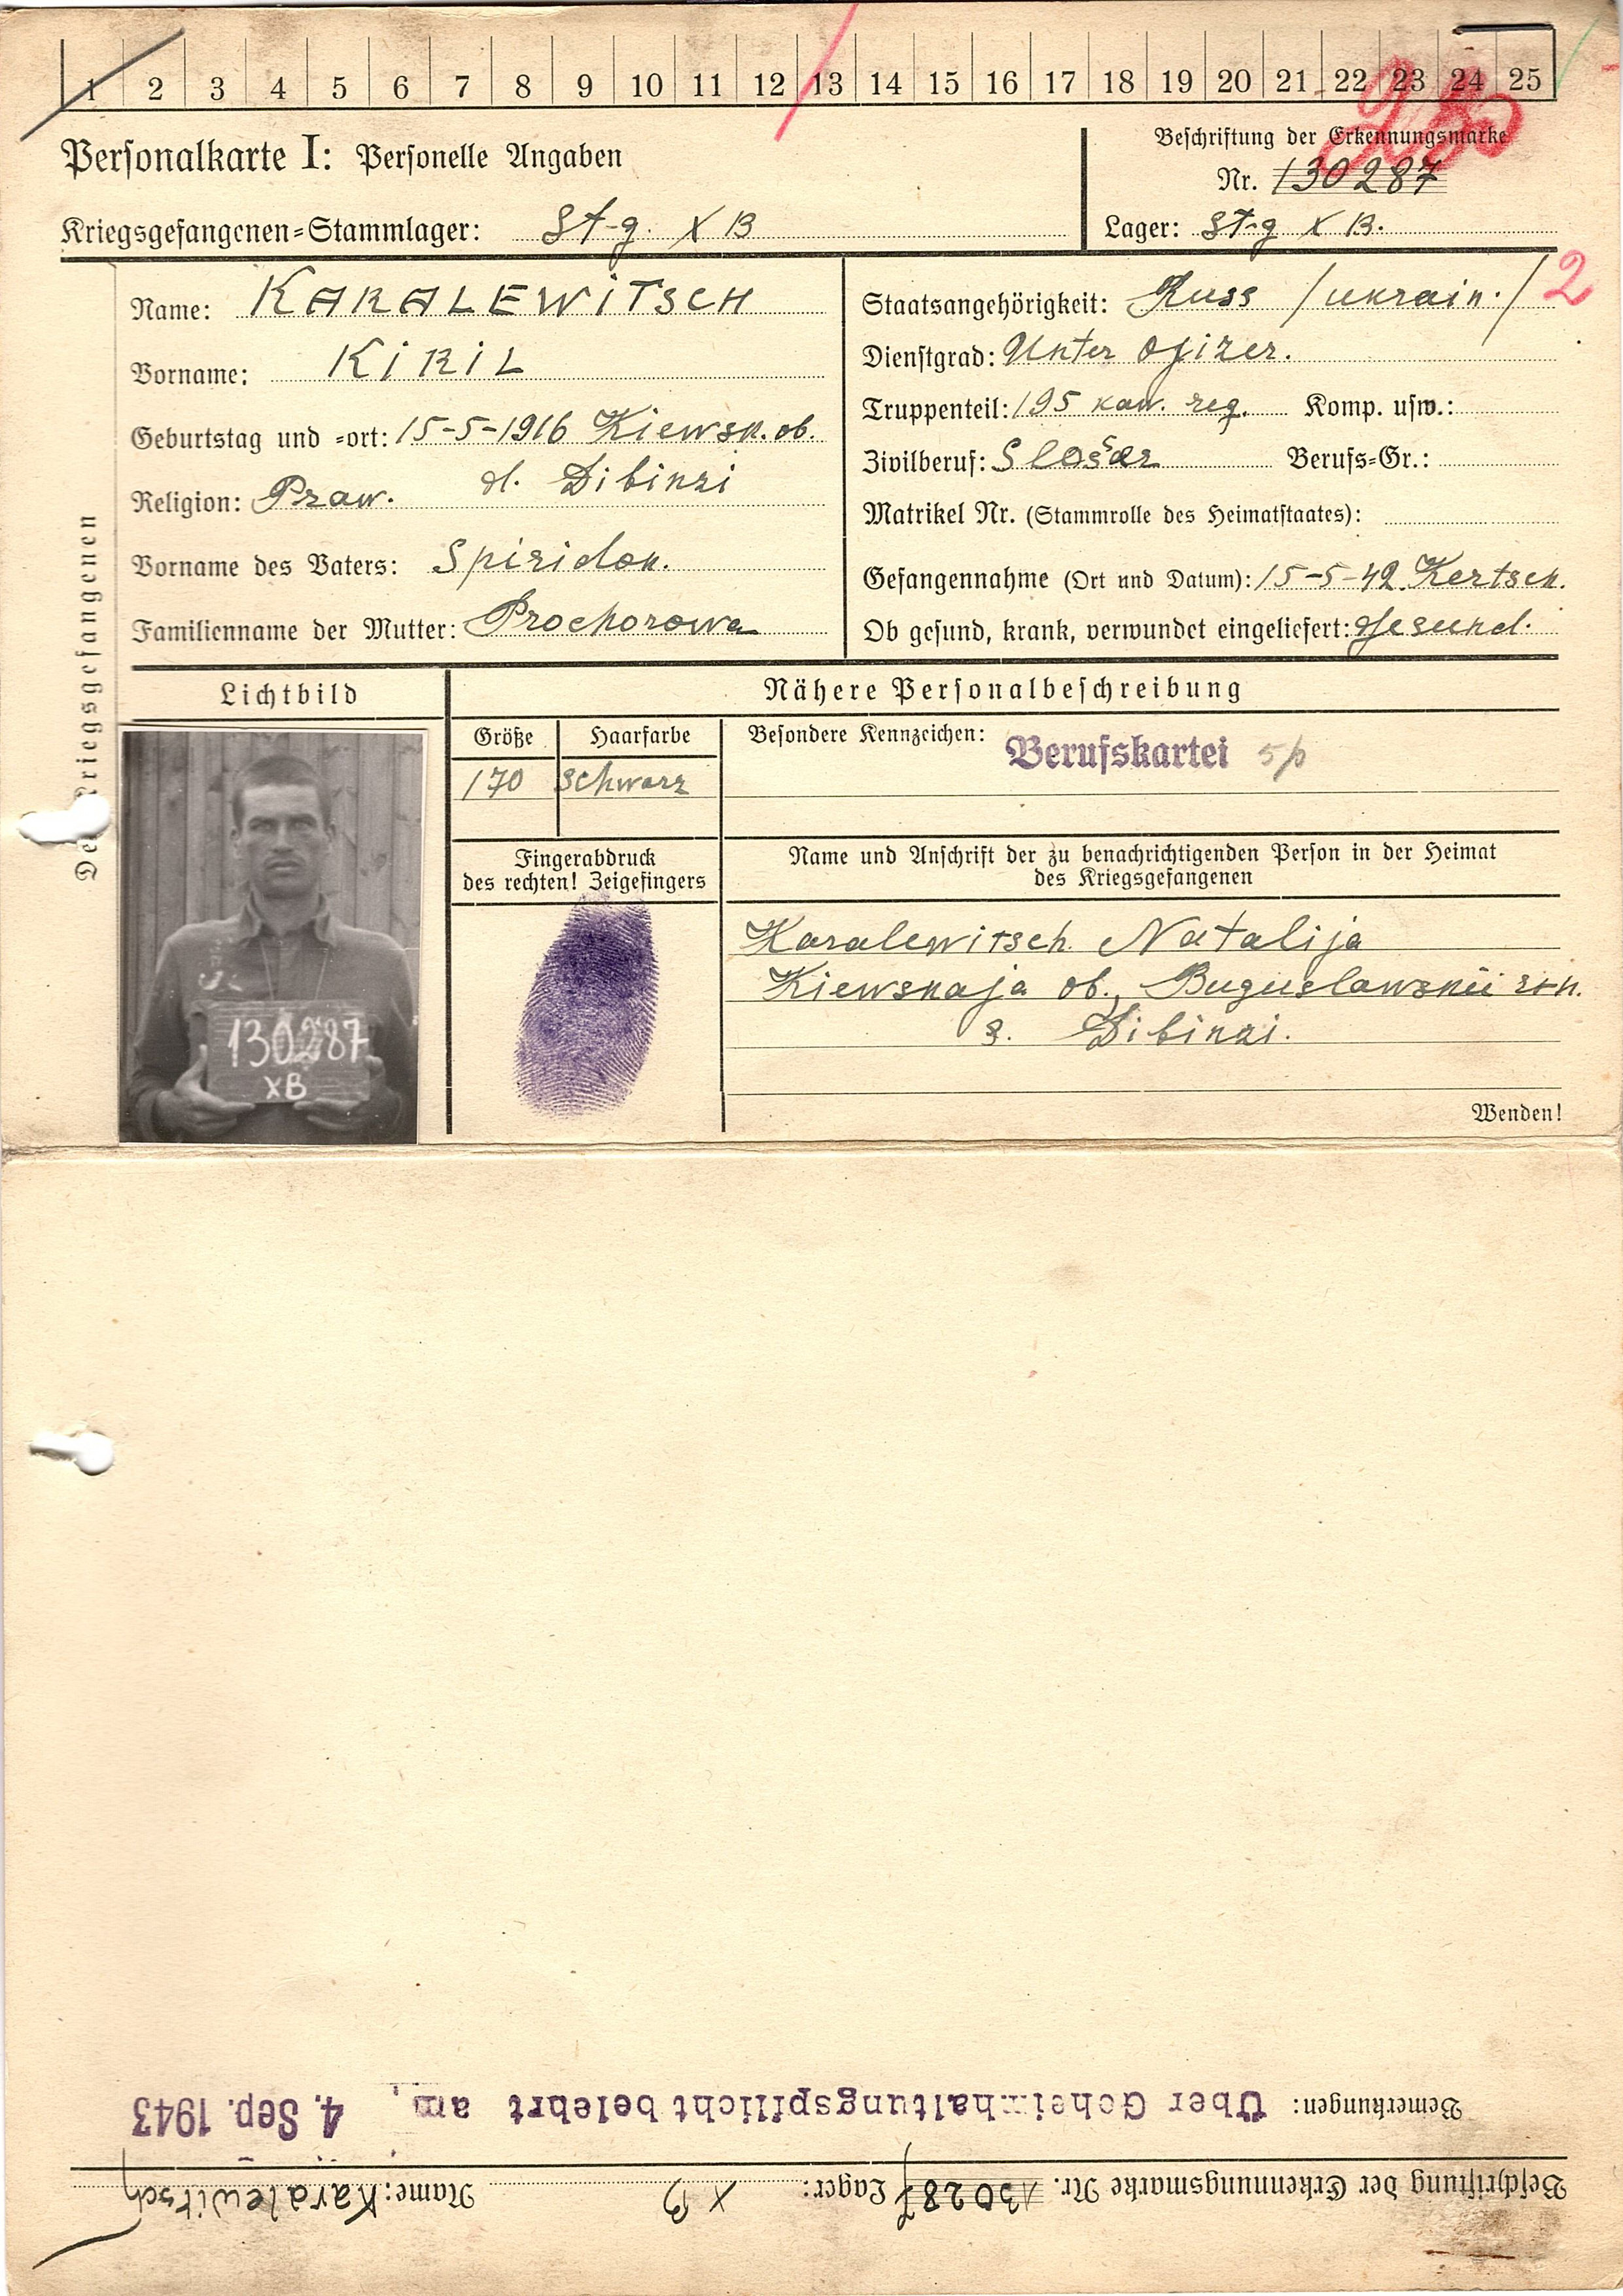 1 2 3 4 5 6 7 8 9 10 11 12 13 14 15 16 17 18 19 20 21 22 23 24 25
Personalkarte I: Personelle Angaben
Kriegsgefangenen-Stammlager: St-g. X B
Beschriftung der Erkennungsmarke
Nr. 130287
Lager: St-g X B.
Des Kriegsgefangenen
Name: KARALEWiTSCH
Vorname: KiRiL
Geburtstag und -ort: 15-5-1916 Kiewsk. ob.
d. Dibinzi
Religion: Praw.
Vorname des Vaters: Spiridon.
Familienname der Mutter: Prochorowa
Staatsangehörigkeit: Russ /ukrain./ 2
Dienstgrad: Unter Ofizer.
Truppenteil: 195 kaw. reg. Komp. usw.:
Zivilberuf: Slošar Berufs-Gr.:
Matrikel Nr. (Stammrolle des Heimatstaates):
Gefangennahme (Ort und Datum): 15-5-42 Kertsch.
Ob gesund, krank, verwundet eingeliefert: gesund.
Lichtbild
130287
XB
Nähere Personalbeschreibung
Größe Haarfarbe
170 schwarz
Besondere Kennzeichen: Berufskartei
Fingerabdruck
des rechten! Zeigefingers
Name und Anschrift der zu benachrichtigenden Person in der Heimat
des Kriegsgefangenen
Karalewitsch Natalija
Kiewskaja ob., Buguslawskii
s. Dibinzi.
Wenden!
Beschriftung der Erkennungsmarke Nr. 130287 Lager: X B Name: Karalewitsch
Bemerkungen: Über Geheimhaltungspflicht belehrt am 4. Sep. 1943